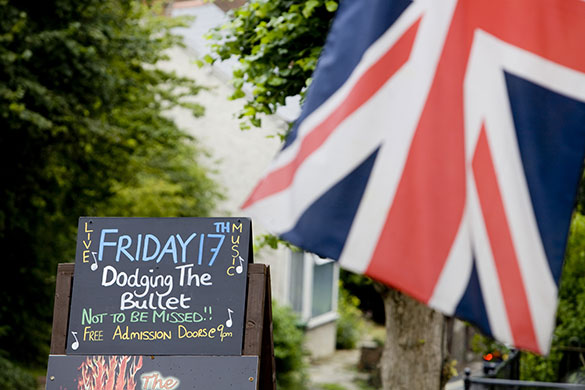 LIVE
FRIDAY 17TH
MUSIC
Dodging The
Bullet
NOT TO BE MISSED!!
FREE ADMISSION DOORS@9pm
The